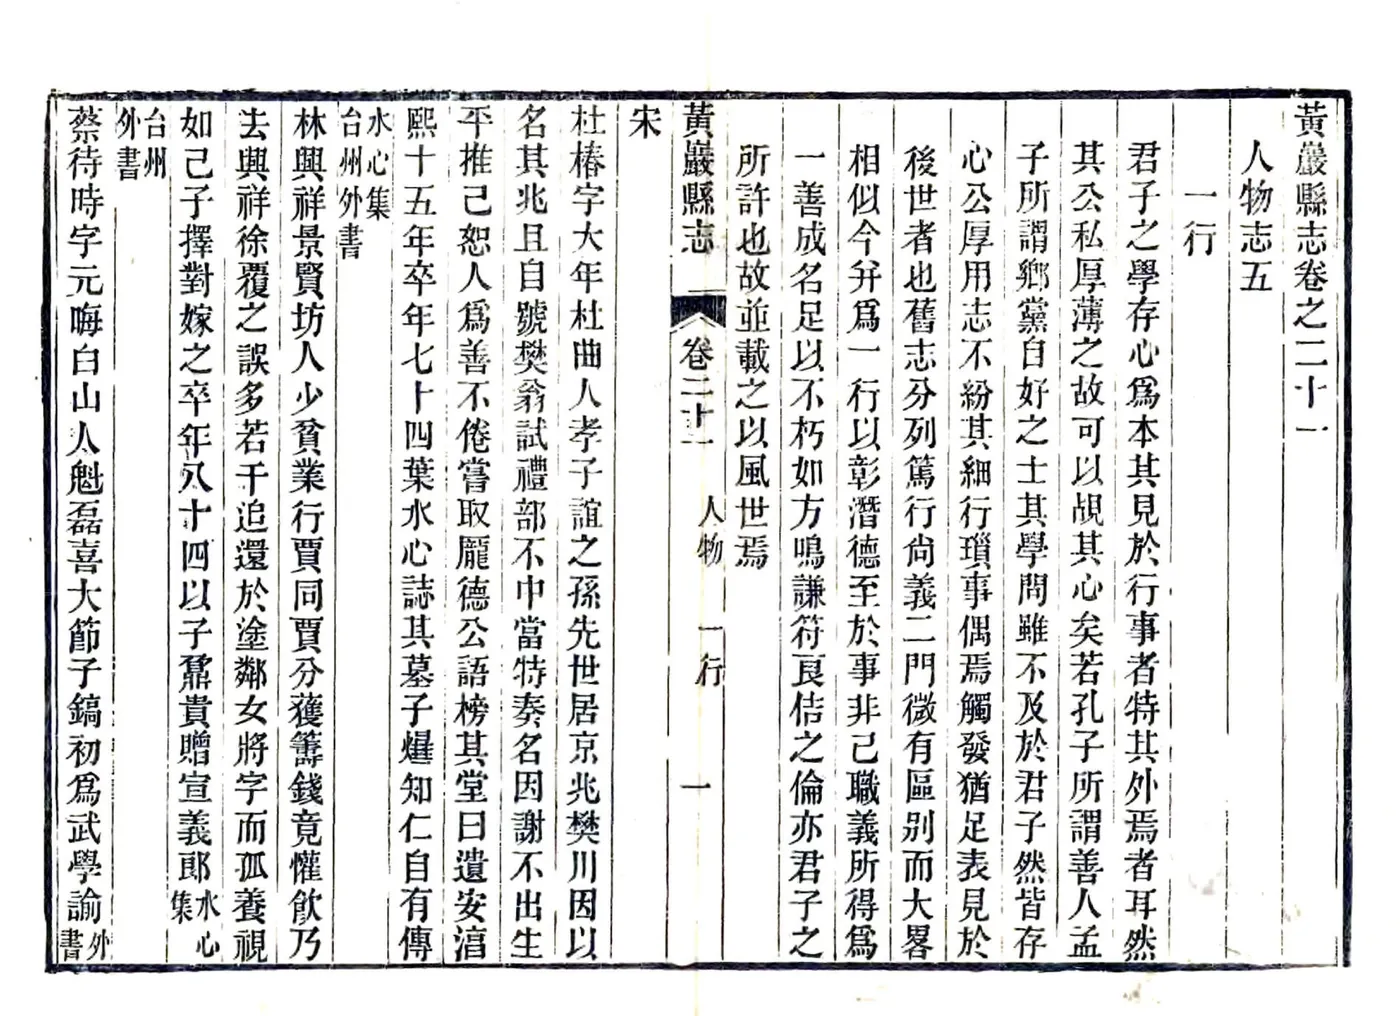 黃巖縣志卷之二十一
人物志五
一行
君子之學存心為本其見於行事者特其外焉者耳然
其公私厚薄之故可以覘其心矣若孔子所謂善人孟
子所謂鄉黨自好之士其學問雖不及於君子然皆存
心公厚用志不紛其細行瑣事偶焉觸發猶足表見於
後世者也舊志分列篤行尙義二門微有區别而大畧
相似今幷為一行以彰潛德至於事非己職義所得為
一善成名足以不朽如方鳴謙符良佶之倫亦君子之
所許也故並載之以風世焉
黃巖縣志 卷二十一 人物 一行 一
宋
杜椿字大年杜曲人孝子誼之孫先世居京兆樊川因以
名其兆且自號樊翁試禮部不中當特奏名因謝不出生
平推己恕人為善不倦嘗取龐德公語榜其堂曰遺安湻
熙十五年卒年七十四葉水心誌其墓子燁知仁自有傳
水心集
台州外書
林興祥景賢坊人少貧業行賈同賈分獲籌錢竟懽飲乃
去興祥徐覆之誤多若干追還於塗鄰女將字而孤養視
如己子擇對嫁之卒年八十四以子鼐貴贈宣義郎水心
集
台州
外書
蔡待時字元晦白山人魁磊喜大節子鎬初為武學諭外
書